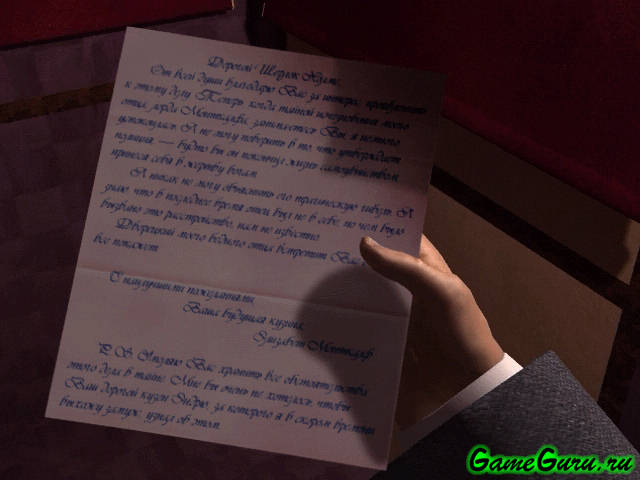 Дорогой Шерлок Холмс,
От всей души благодарю Вас за интерес, проявленный
к этому делу. Теперь, когда тайной исчезновения моего
отца, лорда Монткалфа, занимаетесь Вы, я немного
успокоилась. Я не могу поверить в то, что утверждает
полиция, — будто бы он покончил жизнь самоубийством,
принеся себя в жертву богам.
Я никак не могу объяснить его трагическую гибель. Я
знаю, что в последнее время отец был не в себе, но чем было
вызвано это расстройство, нам не известно.
Дворецкий моего бедного отца встретит Вас и
все покажет.
С наилучшими пожеланиями,
Ваша будущая кузина,
Элизабет Монткалф
P. S. Умоляю Вас хранить все обстоятельства
этого дела в тайне. Мне бы очень не хотелось, чтобы
Ваш дорогой кузен Эндрю, за которого я в скором времени
выхожу замуж, узнал об этом.
GameGuru.ru